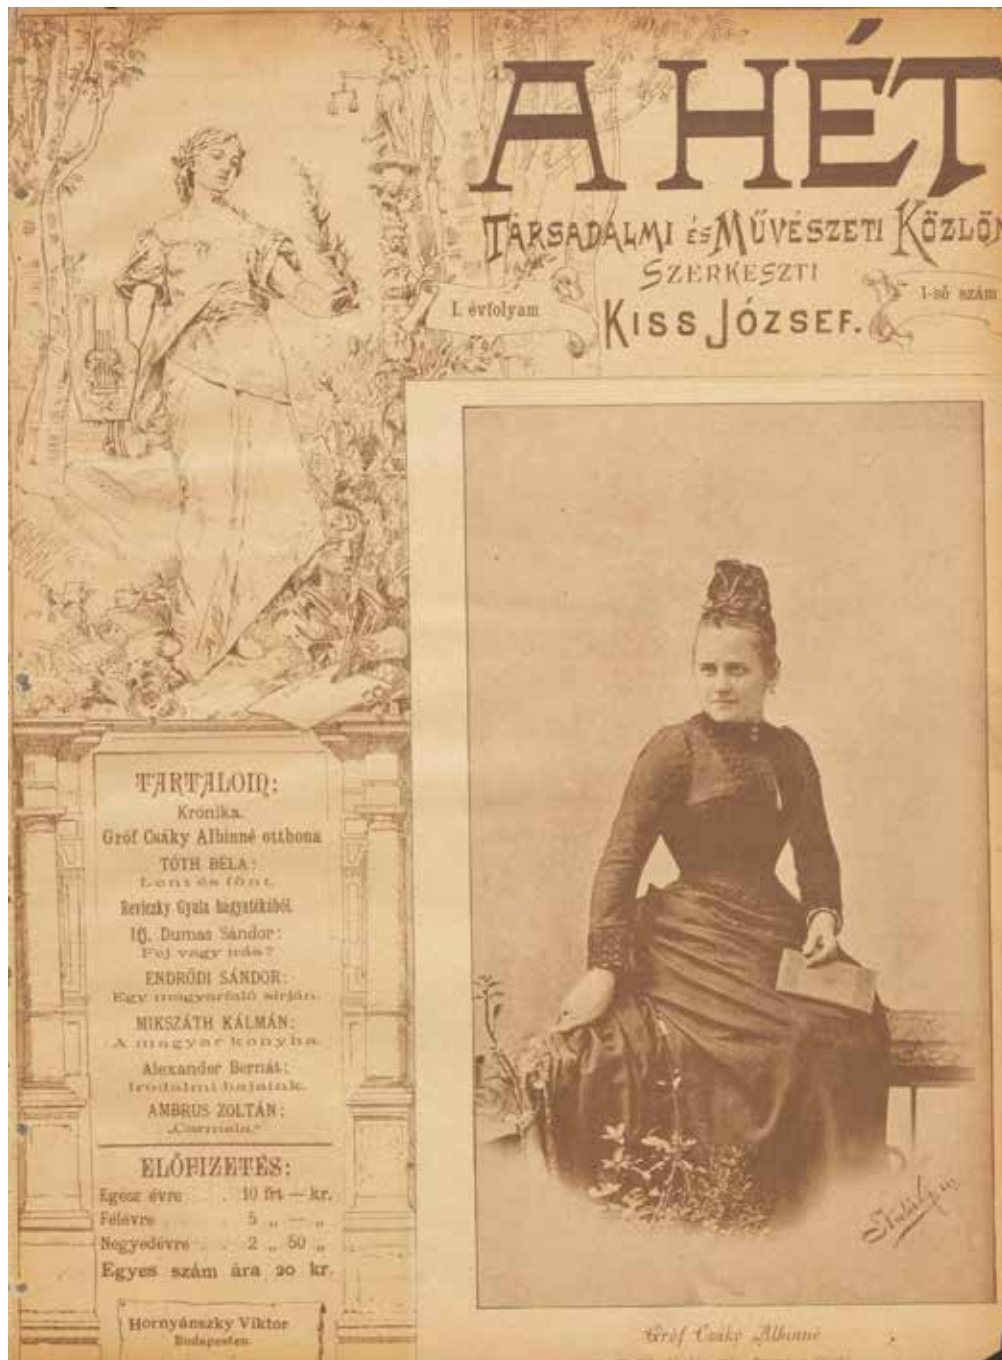 A HÉT
TÁRSADALMI ÉS MŰVÉSZETI KÖZLÖN
SZERKESZTI
KISS JÓZSEF.
I. évfolyam
1-ső szám
TARTALOM:
Krónika.
Gróf Csáky Albinné otthona
TÓTH BÉLA:
Lent és fönt.
Reviczky Gyula hagyatékából.
Ifj. Dumas Sándor:
Fej vagy irás?
ENDRŐDI SÁNDOR:
Egy magyarfaló sirján.
MIKSZÁTH KÁLMÁN:
A magyar konyha.
Alexander Bernát:
Irodalmi bajaink.
AMBRUS ZOLTÁN:
„Carmela."
ELŐFIZETÉS:
Egész évre . . 10 frt — kr.
Félévre . . 5 „ — „
Negyedévre . . 2 „ 50 „
Egyes szám ára 20 kr.
Hornyánszky Viktor
Budapesten
Gróf Csáky Albinné